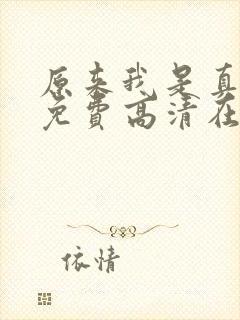 原来我是真
免费高清在
依情